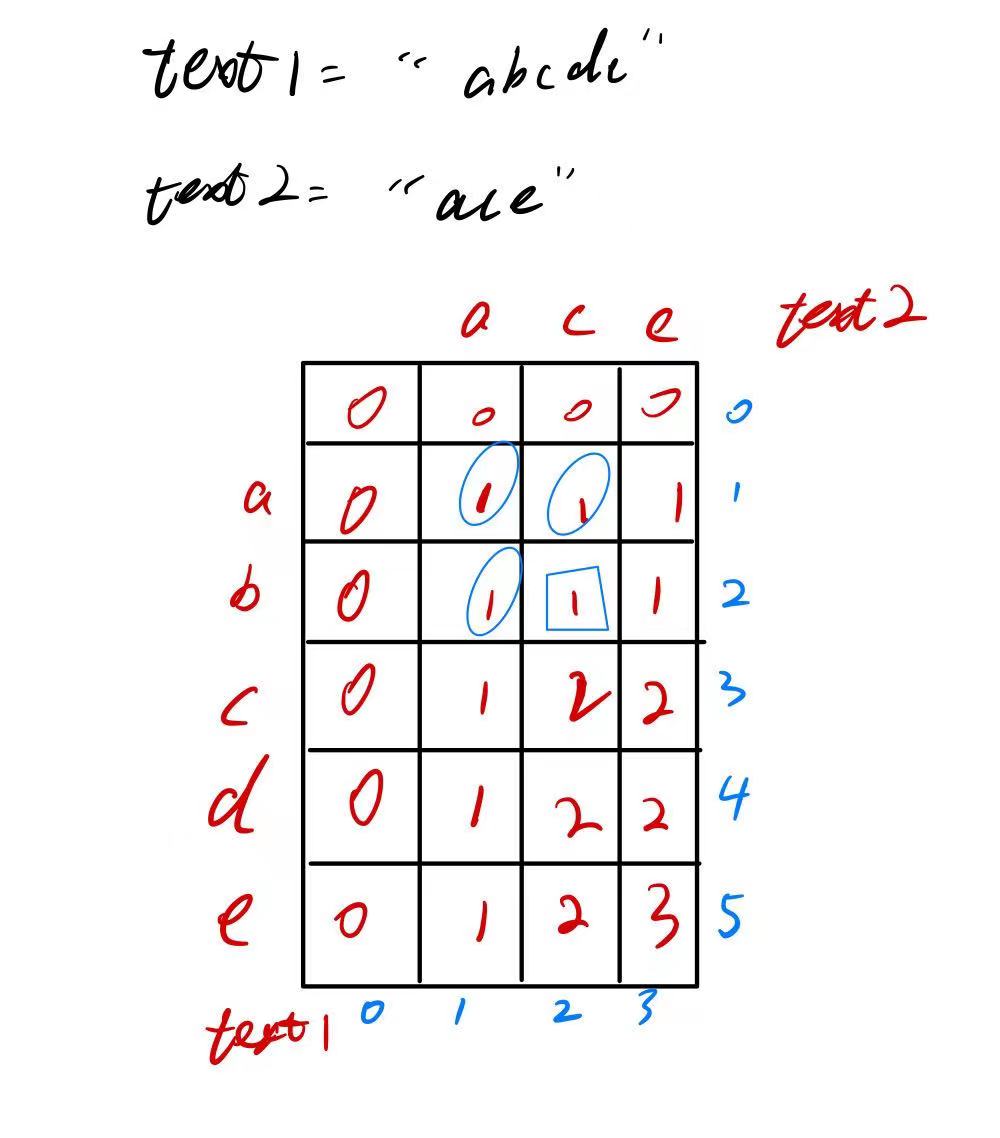 text1= "abcde"
text2= "ace"
a c e text2
0 0 0 0 0
a 0 1 1 1 1
b 0 1 1 1 2
c 0 1 2 2 3
d 0 1 2 2 4
e 0 1 2 3 5
text1 0 1 2 3